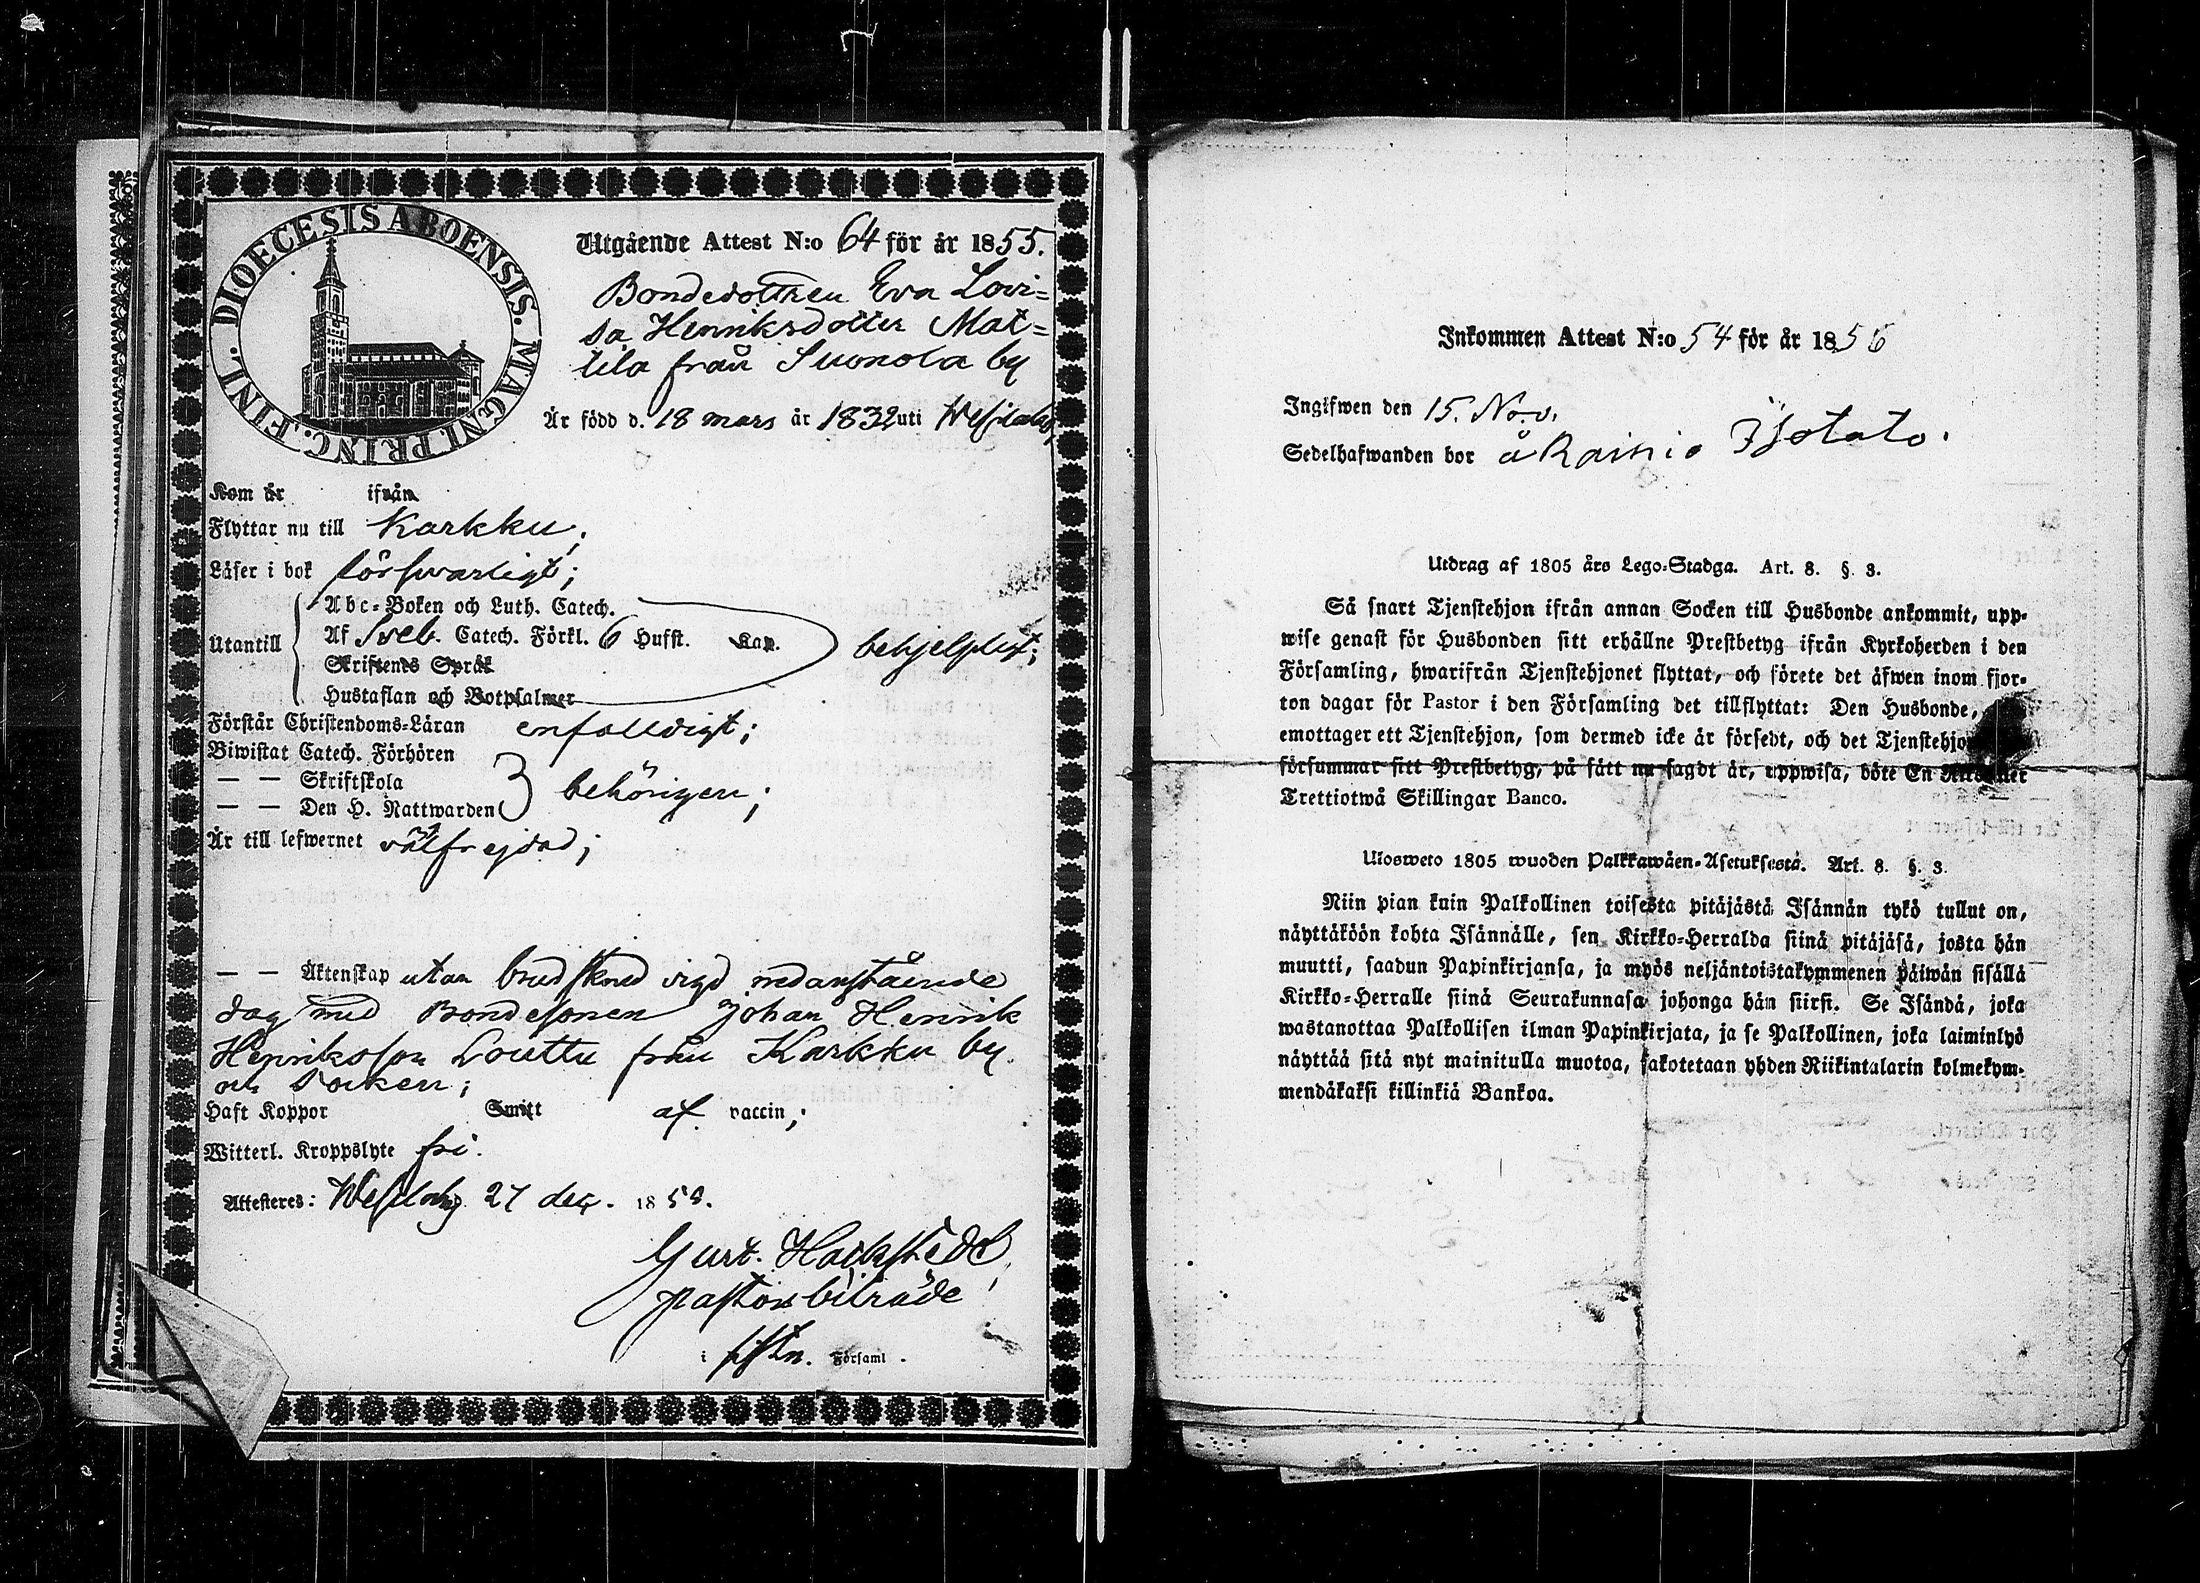 DIOECESIS ABOENSIS. MAGNI. PRINC. FINL.
Utgående Attest N:o 64 för år 1855.
Bondedottren Eva Lovi=
sa Henriksdotter Mat=
tila från Suonola by
Är född d. 18 mars år 1832 uti Wesilaks
Kom år ifrån
Flyttar nu till Karkku;
Läser i bok försvarligt;
Utantill
Abc-Boken och Luth. Catech.
Af Sveb. Catech. Förkl. 6 Hufst. Kap.
behjelpligt;
Skriftenes Språk
Hustaflan och Botpsalmer
Förstår Christendoms-Läran enfalldigt;
Biwistat Catech. Förhören
— — Skriftskola
behörigen;
— — Den H. Nattwarden
Är till lefwernet välfrejdad;
— — Äktenskap utan brudskrud vigd nedanstående
dag med Bondesonen Johan Henrik
Henriksson Louttu från Karkku by
och Socken;
Haft Koppor Smitt af vaccin;
Witterl. Kroppslyte fri.
Attesteres: Wesilaks 27 dec. 185
Gust. Hackstedt
pastorsbiträde
i Församl.
Inkommen Attest N:o 54 för år 1856
Ingifwen den 15. Nov.
Sedelhafwanden bor å Rainio Isotalo.
Utdrag af 1805 års Lego-Stadga. Art. 8. §. 3.
Så snart Tjenstehjon ifrån annan Socken till Husbonde ankommit, upp-
wise genast för Husbonden sitt erhållne Prestbetyg ifrån Kyrkoherden i den
Församling, hwarifrån Tjenstehjonet flyttat, och förete det äfwen inom fjor-
ton dagar för Pastor i den Församling det tillflyttat: Den Husbonde,
emottager ett Tjenstehjon, som dermed icke är försedt, och det Tjenstehjo
försummar sitt Prestbetyg, på sätt nu sagdt är, uppwisa, böte En
Trettiotwå Skillingar Banco.
Ulosweto 1805 wuoden Palkkawäen-Asetuksesta. Art. 8. §. 3.
Niin pian kuin Palkollinen toisesta pitäjästä Isännän tykö tullut on,
näyttäköön kohta Isännälle, sen Kirkko-Herralda siinä pitäjäsä, josta hän
muutti, saadun Papinkirjansa, ja myös neljäntoistakymmenen päiwän sisällä
Kirkko-Herralle siinä Seurakunnasa johonga hän siirsi. Se Isändä, joka
wastanottaa Palkollisen ilman Papinkirjata, ja se Palkollinen, joka laiminlyö
näyttää sitä nyt mainitulla muotoa, sakotetaan yhden Riikintalarin kolmekym-
mendäkaksi killinkiä Bankoa.